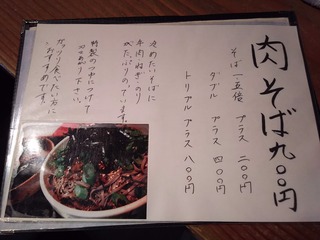 肉そば九〇〇円
そば一五倍 プラス 二〇〇円
ダブル プラス 四〇〇円
トリプル プラス 八〇〇円
冷めたいそばに
牛肉ねぎのり
がたっぷりのっています。
特製のつゆにつけて
お召し上がり下さい。
ガッツリ食べたい方に
おすすめです。